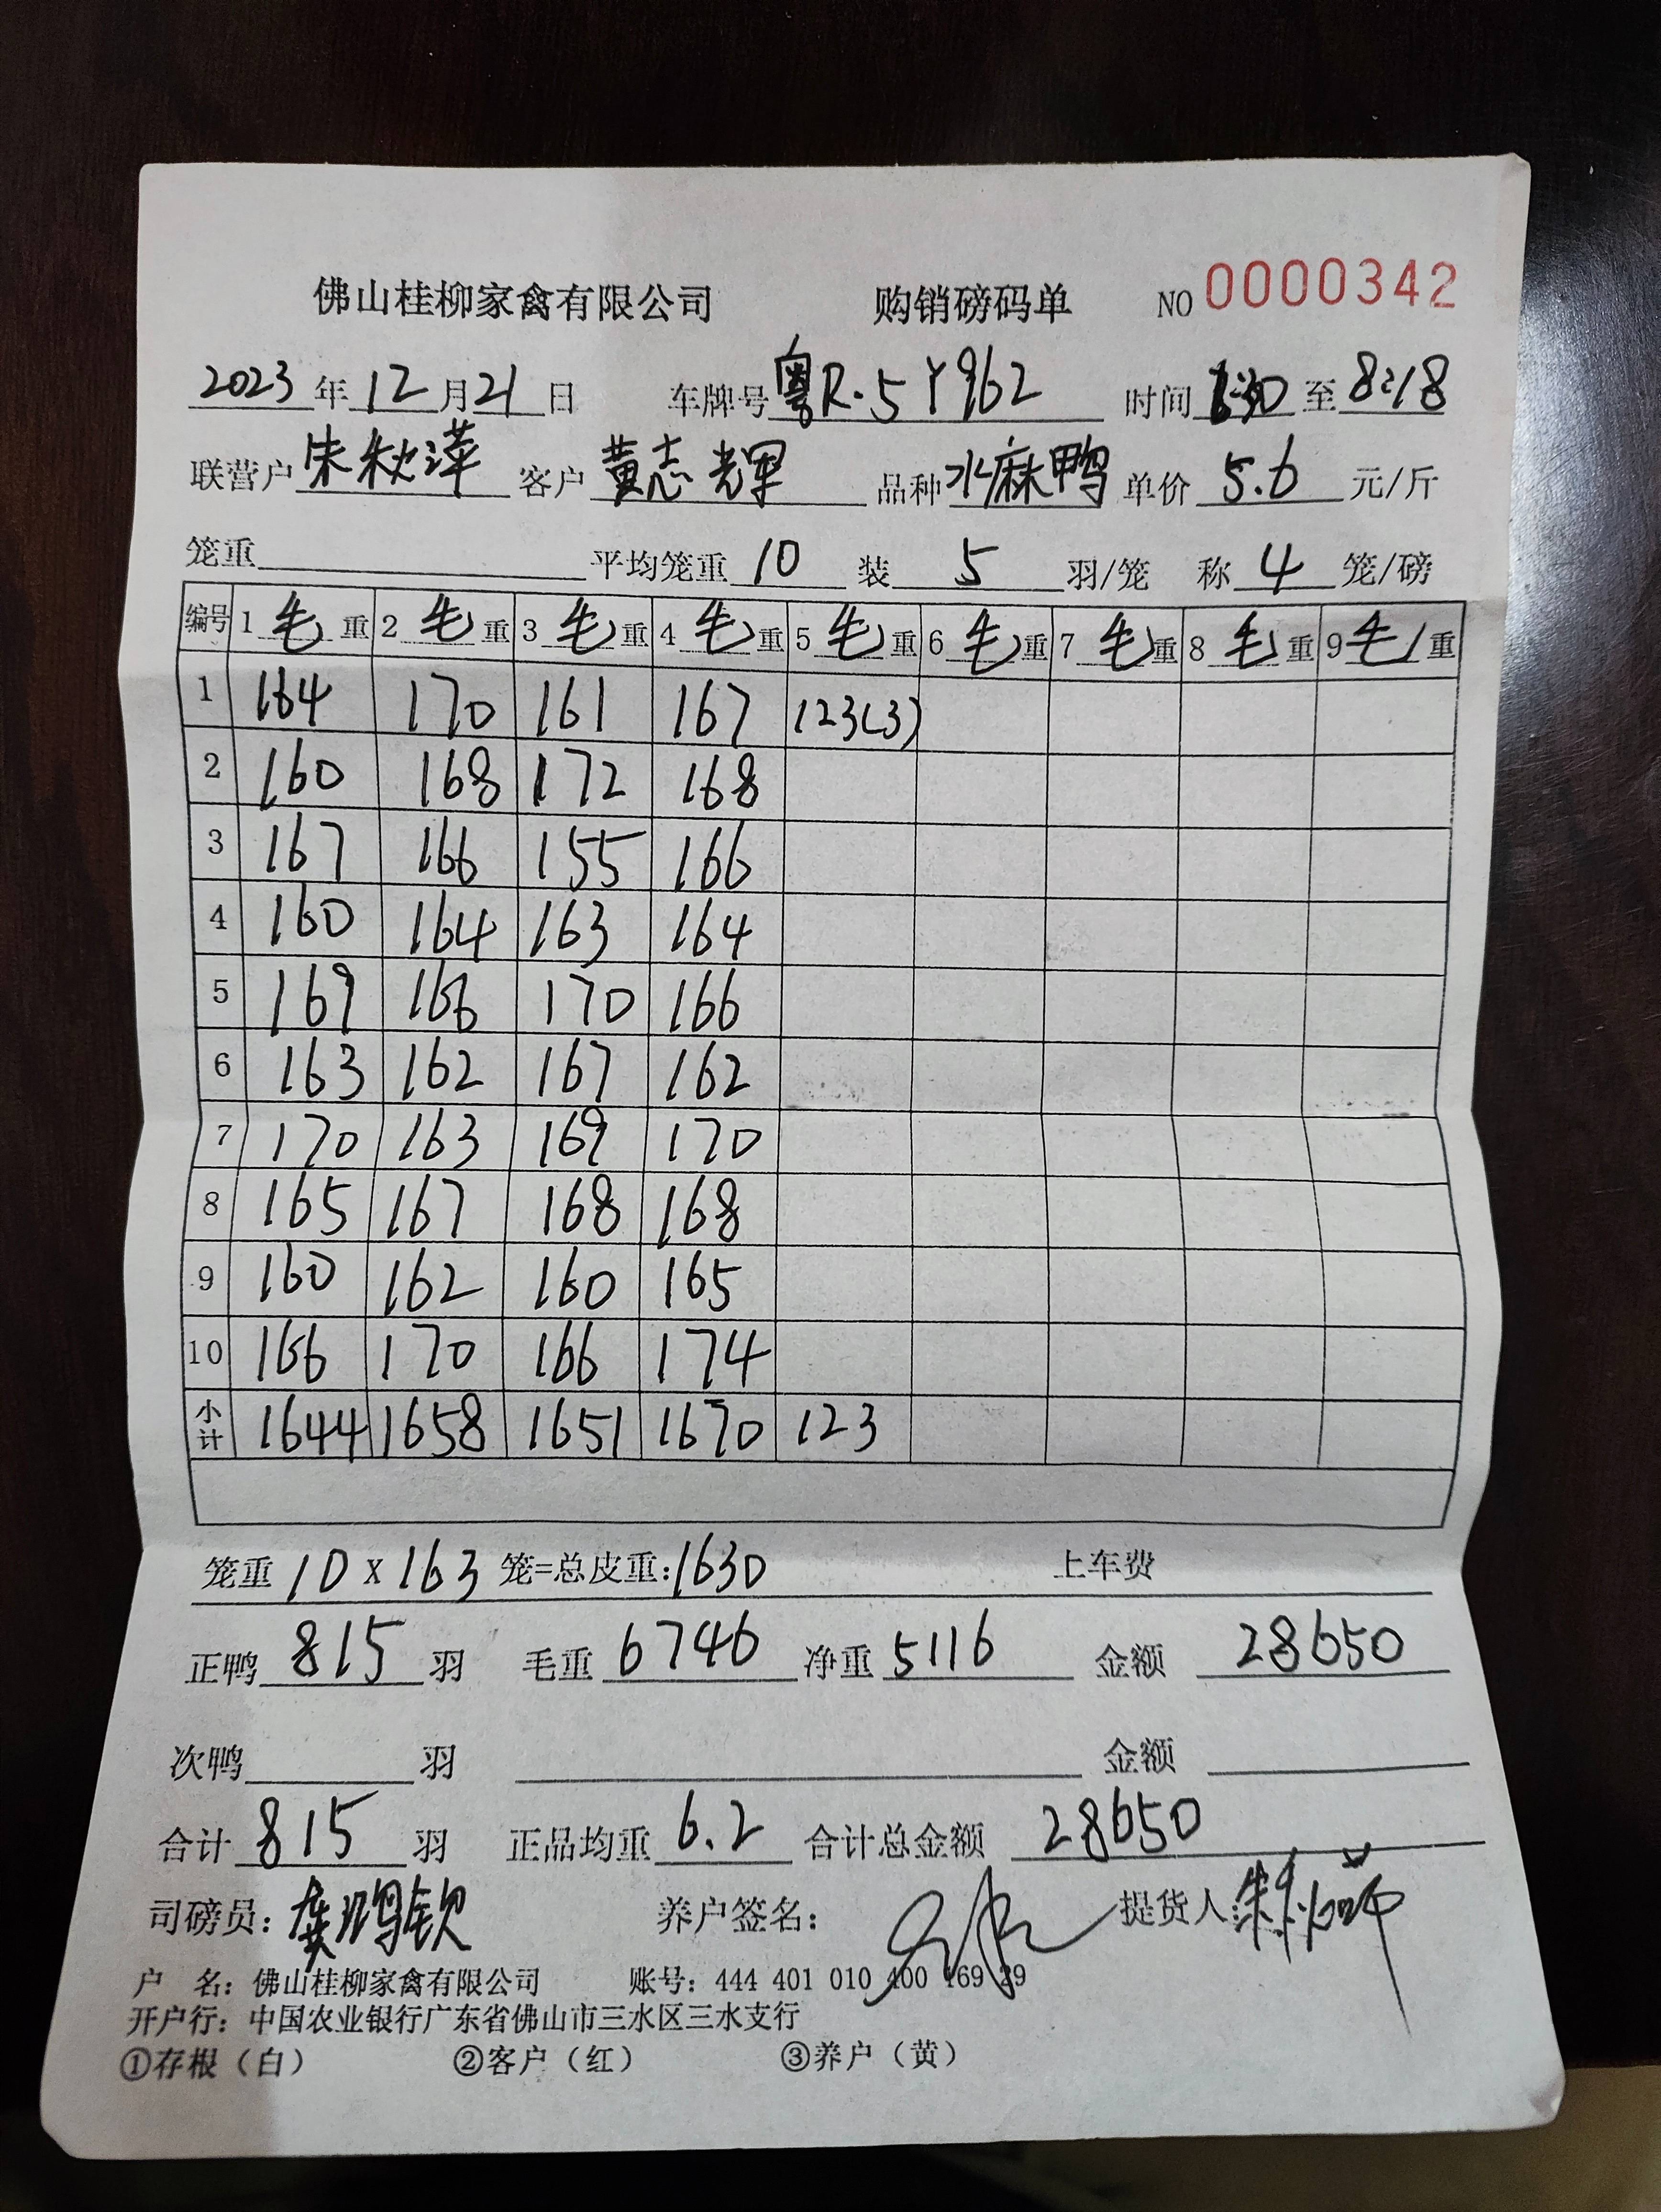 佛山桂柳家禽有限公司 购销磅码单 NO 0000342
2023年12月21日 车牌号粤R·5Y962 时间 至8:18
联营户朱秋萍 客户黄志辉 品种水麻鸭 单价5.6元/斤
笼重 平均笼重10 装5羽/笼 称4笼/磅
编号 1毛重 2毛重 3毛重 4毛重 5毛重 6毛重 7毛重 8毛重 9毛重
1 164 170 161 167 123(3)
2 160 168 172 168
3 167 166 155 166
4 160 164 163 164
5 169 166 170 166
6 163 162 167 162
7 170 163 169 170
8 165 167 168 168
9 160 162 160 165
10 166 170 166 174
小计 1644 1658 1651 1670 123
笼重10X163笼=总皮重:1630 上车费
正鸭815羽 毛重6746 净重5116 金额28650
次鸭 羽 金额
合计815羽 正品均重6.2 合计总金额28650
司磅员:龚鸿钦 养户签名: 提货人:
户 名:佛山桂柳家禽有限公司 账号:444 401 010 400 169 29
开户行:中国农业银行广东省佛山市三水区三水支行
①存根(白) ②客户(红) ③养户(黄)